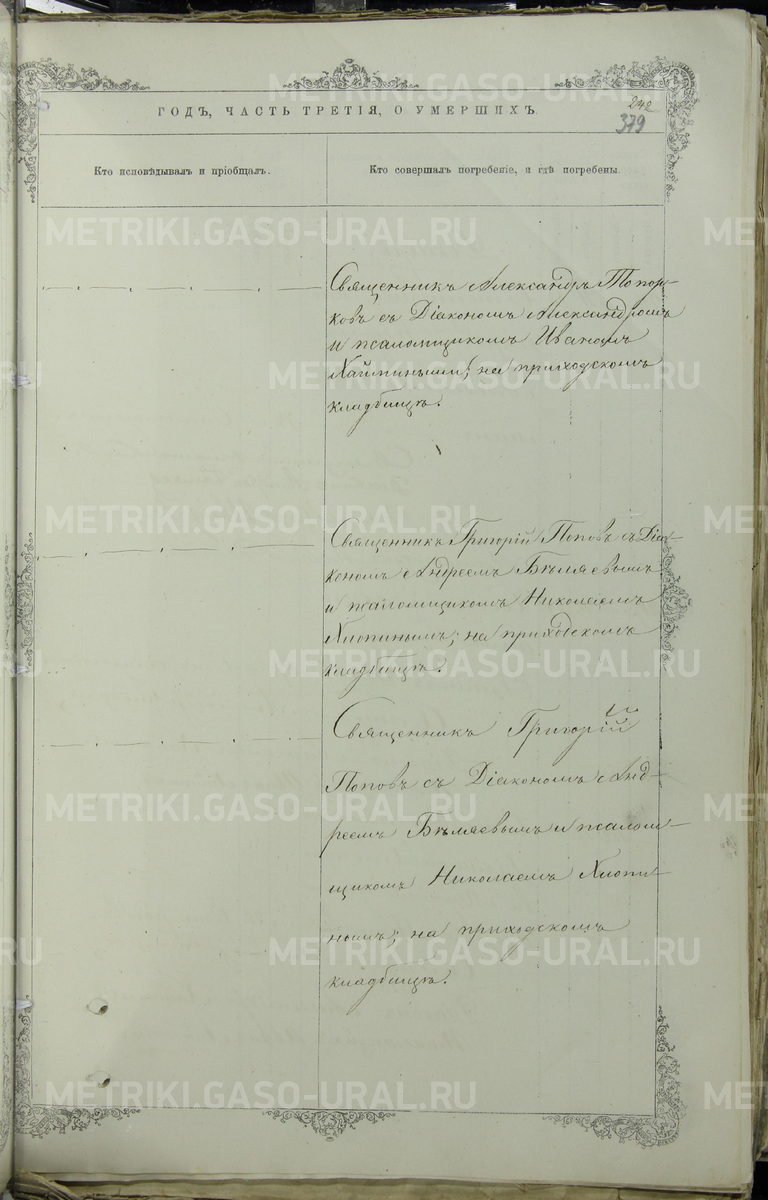 242
379
ГОДЪ, ЧАСТЬ ТРЕТІЯ, О УМЕРШИХЪ.
Кто исповѣдывалъ и пріобщалъ.
Кто совершалъ погребеніе, и гдѣ погребены.
Священникъ Александръ Топор-
ковъ съ Діакономъ Александромъ
и псаломщикомъ Иваномъ
на приходскомъ
кладбищѣ.
Священникъ Григорій Поповъ съ Діа-
кономъ Андреемъ Бѣляевымъ
и псаломщикомъ Николаемъ
Хлопинымъ; на приходскомъ
кладбищѣ.
Священникъ Григорій
Поповъ съ Діакономъ Анд-
реемъ Бѣляевымъ и псалом-
щикомъ Николаемъ Хлопи-
нымъ; на приходскомъ
кладбищѣ.
METRIKI.GASO-URAL.RU